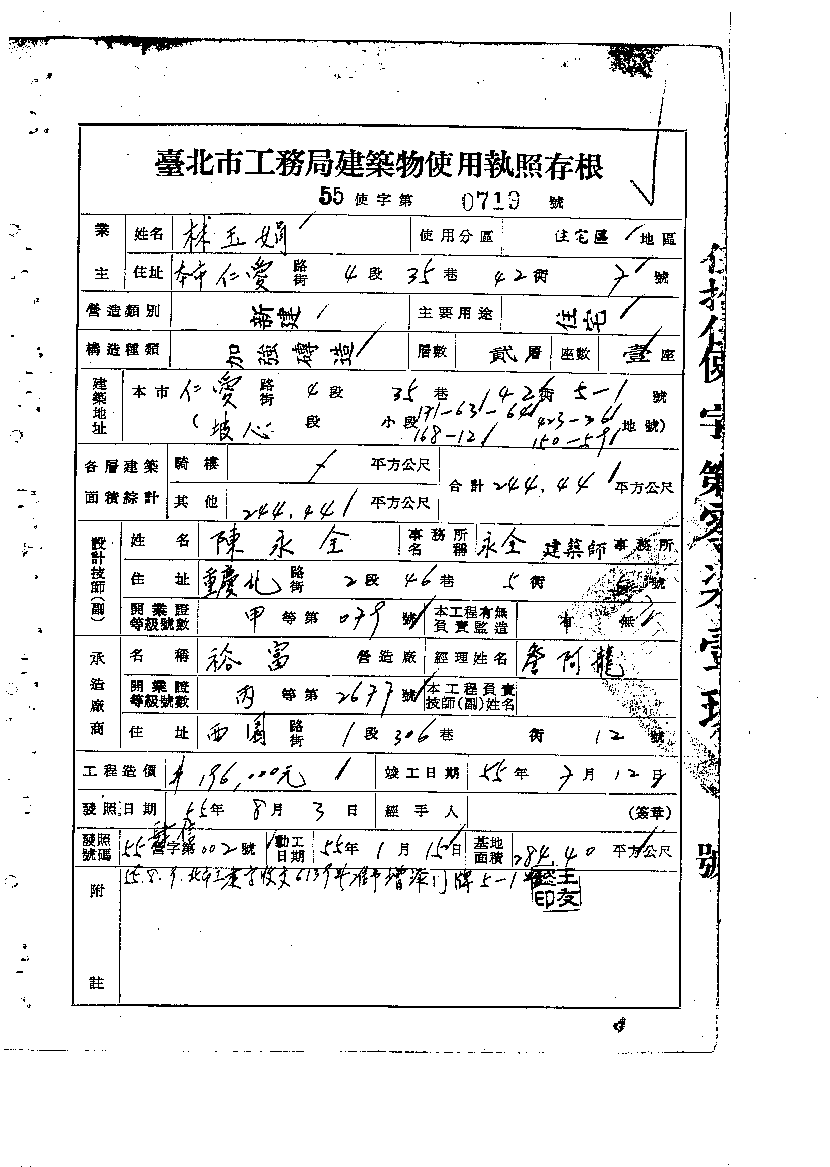 臺北市工務局建築物使用執照存根
55 使字第 0719 號
業主 姓名 林玉娟 使用分區 住宅區 地區
住址 本市仁愛 路街 4 段 35 巷 42 街 7 號
營造類別 新建 主要用途 住宅
構造種類 加強磚造 層數 貳層 座數 壹座
建築地址 本市 仁愛 路街 4 段 35 巷 42 街 5-1 號
(坡心 段 小段 171-63 168-12 423-26 150-59 地號)
各層建築面積綜計 騎樓 平方公尺 合計 244.44 平方公尺
其他 244.44 平方公尺
設計技師(副) 姓名 陳永全 事務所名稱 永全 建築師事務所
住址 重慶北 路街 2 段 46 巷 5 街 號
開業證等級號數 甲 等第 079 號 本工程有無負責監造 有 無
承造廠商 名稱 裕富 營造廠 經理姓名 詹阿龍
開業證等級號數 丙 等第 2677 號 本工程負責技師(副)姓名
住址 西園 路街 1 段 306 巷 街 12 號
工程造價 196,000元 竣工日期 55 年 7 月 12 日
發照日期 55 年 8 月 3 日 經手人 (簽章)
發照號碼 55 營字第 002 號 動工日期 55 年 1 月 15 日 基地面積 284.40 平方公尺
附註 55.8.9.北市工建字收文 准予增添門牌5-1號
王友
印
伍拾伍使字第零柒壹玖號